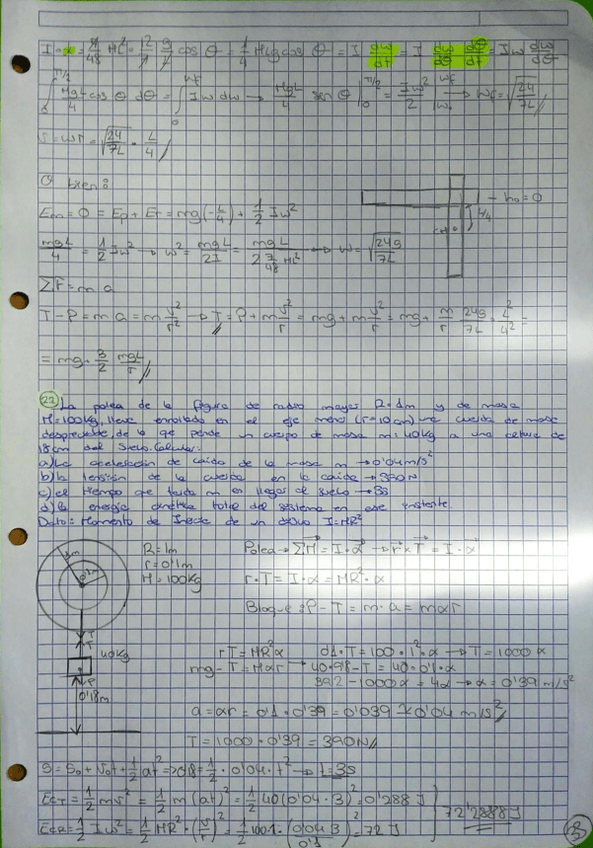 I·α = 7/48 ML² = 12/7 g/L cos θ = 1/4 MLg cos θ = I dω/dt = I dω/dθ dθ/dt = Iω dω/dθ
∫₀^π/2 MgL/4 cos θ dθ = ∫₀^ωf Iω dω → MgL/4 sen θ |₀^π/2 = Iω²/2 |ω₀^ωf → ωf = √24/7L
v = ωr = √24/7L · L/4
O bien:
Em = 0 = Ep + Er = mg(-L/4) + 1/2 Iω²
- h₀=0
L/4
mgL/4 = 1/2 Iω² → ω² = mgL/2I = mgL/2 7/48 ML² → ω = √24g/7L
ΣF = m a
T - P = m a = m v²/r² → T = P + m v²/r = mg + m v²/r = mg + m/r 24g/7L · L²/4² =
= mg + 3/2 mgL/r
22 La polea de la figura de radio mayor R=1m y de masa
M=100kg, lleva enrollada en el eje menor (r=10cm) una cuerda de masa
despreciable, de la que pende un cuerpo de masa m=40kg a una altura de
18cm del suelo. Calcular:
a) La aceleración de caída de la masa m → 0'04 m/s²
b) la tensión de la cuerda en la caída → 390N
c) el tiempo que tarda m en llegar al suelo → 3s
d) la energía cinética total del sistema en ese instante.
Dato: Momento de Inercia de un disco I=MR²
1m
0'1m
R=1m
r=0'1m
M=100kg
Polea → ΣM = I·α → r×T = I·α
r·T = I·α = MR²·α
Bloque: P - T = m·a = mαr
T
T
40kg
P
0'18m
rT = MR²α
0'1·T = 100·1²·α → T = 1000α
mg - T = mαr → 40·9'8 - T = 40·0'1·α
392 - 1000α = 4α → α = 0'39 m/s²
a = αr = 0'1·0'39 = 0'039 ≈ 0'04 m/s²
T = 1000·0'39 = 390N
S = S₀ + V₀t + 1/2 at² → 0'18 = 1/2·0'04·t² → t = 3s
EcT = 1/2 mv² = 1/2 m(at)² = 1/2 40(0'04·3)² = 0'288 J
EcR = 1/2 Iω² = 1/2 MR²·(v/r)² = 1/2 100·1·(0'04·3/0'1)² = 72 J
72'2888 J